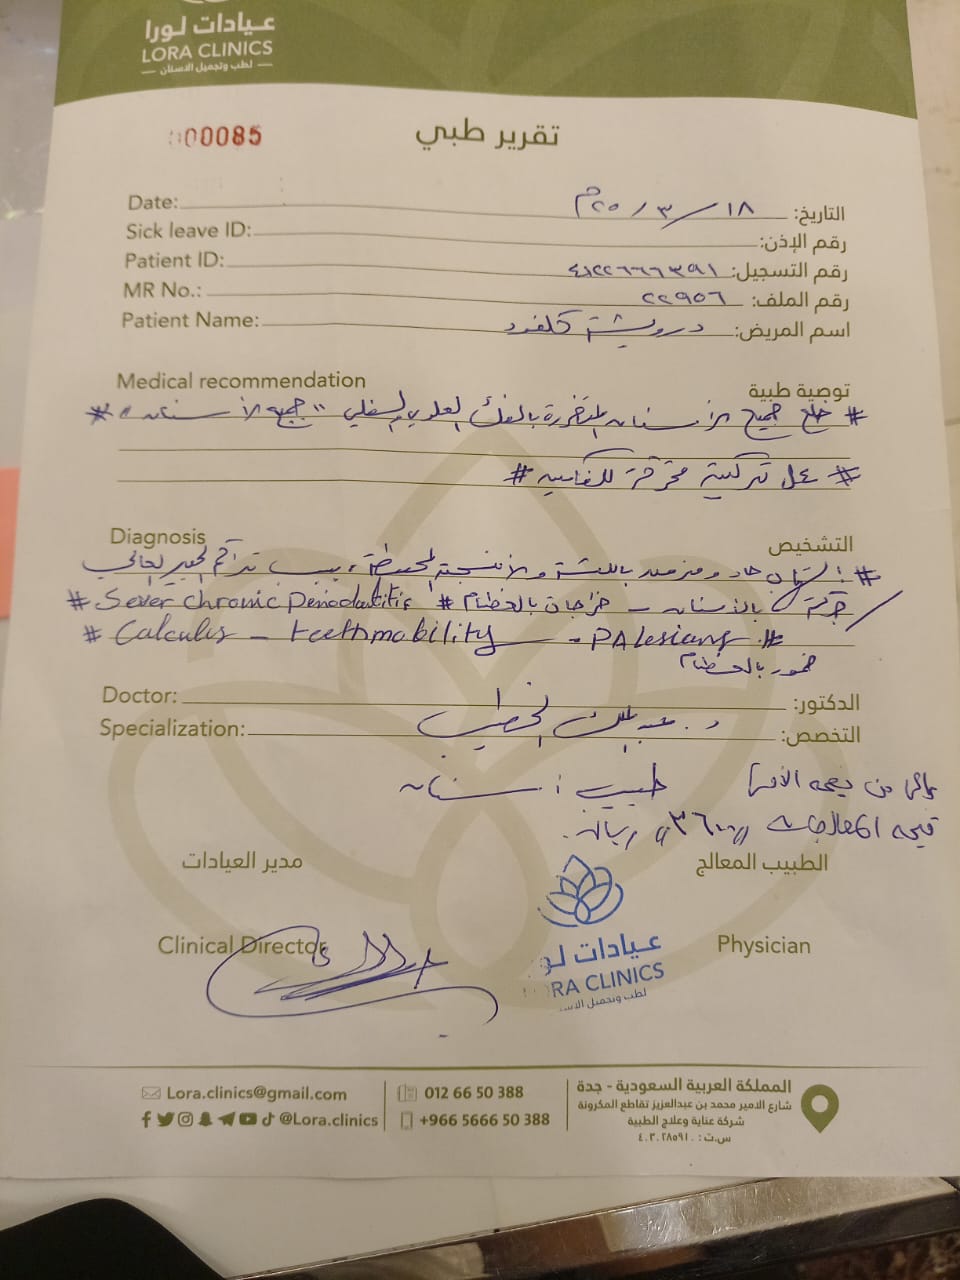 عيادات لورا
LORA CLINICS
لطب وتجميل الاسنان
000085
تقرير طبي
Date: ١٨ / ٣ / ٢٠٢٥م التاريخ:
Sick leave ID: رقم الإذن:
Patient ID: رقم التسجيل:
MR No.: ٢٢٩٥٦ رقم الملف:
Patient Name: درويشة اسم المريض:
Medical recommendation توصية طبية
# خلع جميع الأسنان المتضررة بالفك العلوي والسفلي "جميع الأسنان" #
# عمل تركيبة متحركة للفكين #
Diagnosis التشخيص
# إلتهاب حاد ومزمن باللثة والأنسجة المحيطة، بسبب تراكم الجير
حركة بالأسنان - خراجات بالعظام # Sever chronic Periodontitis #
# Calculus - teeth mobility - PA lesions #
ضمور بالعظام
Doctor: د. عبدالملك الخطيب الدكتور:
Specialization: التخصص:
طبيب أسنان
قيمة المعالجات "٣٦٠٠" ريال.
مدير العيادات
الطبيب المعالج
Clinical Director
Physician
عيادات لو
RA CLINICS
لطب وتجميل الاسنا
Lora.clinics@gmail.com
@Lora.clinics
012 66 50 388
+966 5666 50 388
المملكة العربية السعودية - جدة
شارع الامير محمد بن عبدالعزيز تقاطع المكرونة
شركة عناية وعلاج الطبية
س.ت : ٤٠٣٠٢٨٥٩١٠